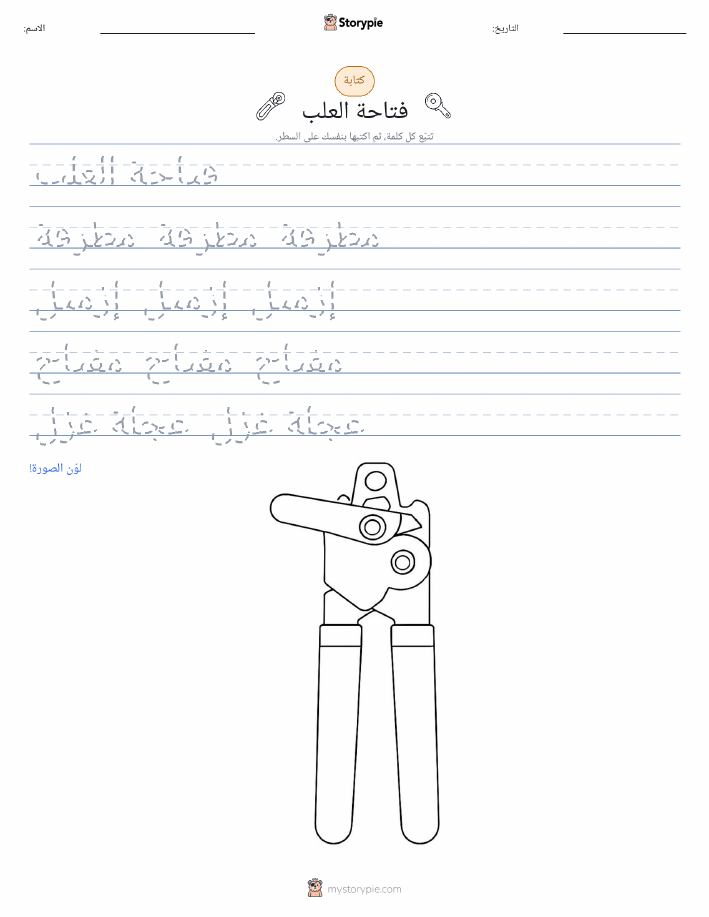 الاسم: التاريخ:
Storypie
كتابة
فتاحة العلب
تتبّع كل كلمة، ثم اكتبها بنفسك على السطر.
فتاحة العلب
مطرقة مطرقة مطرقة
إزميل إزميل إزميل
مفتاح مفتاح مفتاح
عجلة غزل عجلة غزل
لوّن الصورة!
mystorypie.com